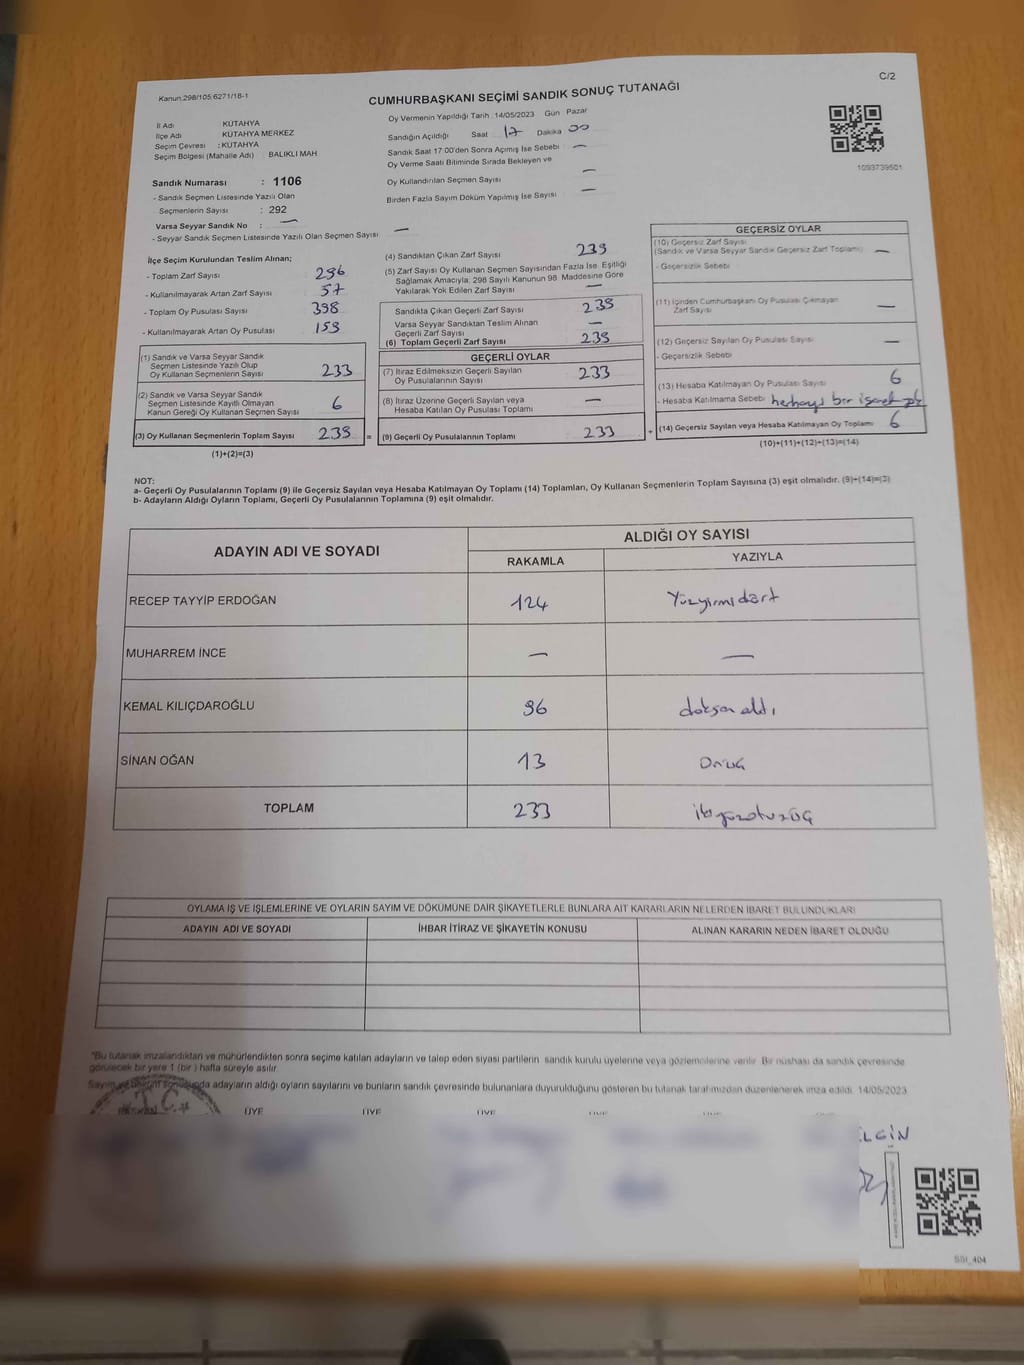 Kanun:298/105;6271/18-1
C/2
CUMHURBAŞKANI SEÇİMİ SANDIK SONUÇ TUTANAĞI
İl Adı KÜTAHYA
İlçe Adı KÜTAHYA MERKEZ
Seçim Çevresi : KÜTAHYA
Seçim Bölgesi (Mahalle Adı) BALIKLI MAH
Oy Vermenin Yapıldığı Tarih 14/05/2023 Gün Pazar
Sandığın Açıldığı Saat 17 Dakika 00
Sandık Saat 17:00'den Sonra Açımış İse Sebebi —
Oy Verme Saati Bitiminde Sırada Bekleyen ve
Oy Kullandırılan Seçmen Sayısı —
Birden Fazla Sayım Döküm Yapılmış İse Sayısı —
1093739501
Sandık Numarası : 1106
- Sandık Seçmen Listesinde Yazılı Olan
Seçmenlerin Sayısı : 292
Varsa Seyyar Sandık No : —
- Seyyar Sandık Seçmen Listesinde Yazılı Olan Seçmen Sayısı —
İlçe Seçim Kurulundan Teslim Alınan;
- Toplam Zarf Sayısı 296
- Kullanılmayarak Artan Zarf Sayısı 57
- Toplam Oy Pusulası Sayısı 398
- Kullanılmayarak Artan Oy Pusulası 159
(1) Sandık ve Varsa Seyyar Sandık
Seçmen Listesinde Yazılı Olup
Oy Kullanan Seçmenlerin Sayısı 233
(2) Sandık ve Varsa Seyyar Sandık
Seçmen Listesinde Kayıtlı Olmayan
Kanun Gereği Oy Kullanan Seçmen Sayısı 6
(3) Oy Kullanan Seçmenlerin Toplam Sayısı 239 =
(1)+(2)=(3)
(4) Sandıktan Çıkan Zarf Sayısı 239
(5) Zarf Sayısı Oy Kullanan Seçmen Sayısından Fazla İse Eşitliği
Sağlamak Amacıyla; 298 Sayılı Kanunun 98. Maddesine Göre
Yakılarak Yok Edilen Zarf Sayısı —
Sandıkta Çıkan Geçerli Zarf Sayısı 239
Varsa Seyyar Sandıktan Teslim Alınan
Geçerli Zarf Sayısı —
(6) Toplam Geçerli Zarf Sayısı 239
GEÇERLİ OYLAR
(7) İtiraz Edilmeksizin Geçerli Sayılan
Oy Pusulalarının Sayısı 233
(8) İtiraz Üzerine Geçerli Sayılan veya
Hesaba Katılan Oy Pusulası Toplamı —
(9) Geçerli Oy Pusulalarının Toplamı 233 +
GEÇERSİZ OYLAR
(10) Geçersiz Zarf Sayısı
(Sandık ve Varsa Seyyar Sandık Geçersiz Zarf Toplamı) —
- Geçersizlik Sebebi
(11) İçinden Cumhurbaşkanı Oy Pusulası Çıkmayan
Zarf Sayısı —
(12) Geçersiz Sayılan Oy Pusulası Sayısı —
- Geçersizlik Sebebi
(13) Hesaba Katılmayan Oy Pusulası Sayısı 6
- Hesaba Katılmama Sebebi herhangi bir işaret
(14) Geçersiz Sayılan veya Hesaba Katılmayan Oy Toplamı 6
(10)+(11)+(12)+(13)=(14)
NOT:
a- Geçerli Oy Pusulalarının Toplamı (9) ile Geçersiz Sayılan veya Hesaba Katılmayan Oy Toplamı (14) Toplamları, Oy Kullanan Seçmenlerin Toplam Sayısına (3) eşit olmalıdır. (9)+(14)=(3)
b- Adayların Aldığı Oyların Toplamı, Geçerli Oy Pusulalarının Toplamına (9) eşit olmalıdır.
ADAYIN ADI VE SOYADI
ALDIĞI OY SAYISI
RAKAMLA YAZIYLA
RECEP TAYYİP ERDOĞAN 124 Yüzyirmidört
MUHARREM İNCE — —
KEMAL KILIÇDAROĞLU 96 doksan altı
SİNAN OĞAN 13 Onüç
TOPLAM 233 ikiyüzotuzüç
OYLAMA İŞ VE İŞLEMLERİNE VE OYLARIN SAYIM VE DÖKÜMÜNE DAİR ŞİKAYETLERLE BUNLARA AİT KARARLARIN NELERDEN İBARET BULUNDUKLARI
ADAYIN ADI VE SOYADI İHBAR İTİRAZ VE ŞİKAYETİN KONUSU ALINAN KARARIN NEDEN İBARET OLDUĞU
"Bu tutanak imzalandıktan ve mühürlendikten sonra seçime katılan adayların ve talep eden siyasi partilerin sandık kurulu üyelerine veya gözlemcilerine verilir. Bir nüshası da sandık çevresinde
görülecek bir yere 1 (bir) hafta süreyle asılır.
Sayım ve döküm sonucunda adayların aldığı oyların sayılarını ve bunların sandık çevresinde bulunanlara duyurulduğunu gösteren bu tutanak tarafımızdan düzenlenerek imza edildi. 14/05/2023
T.C.
ÜYE ÜYE ÜYE
SSI_404